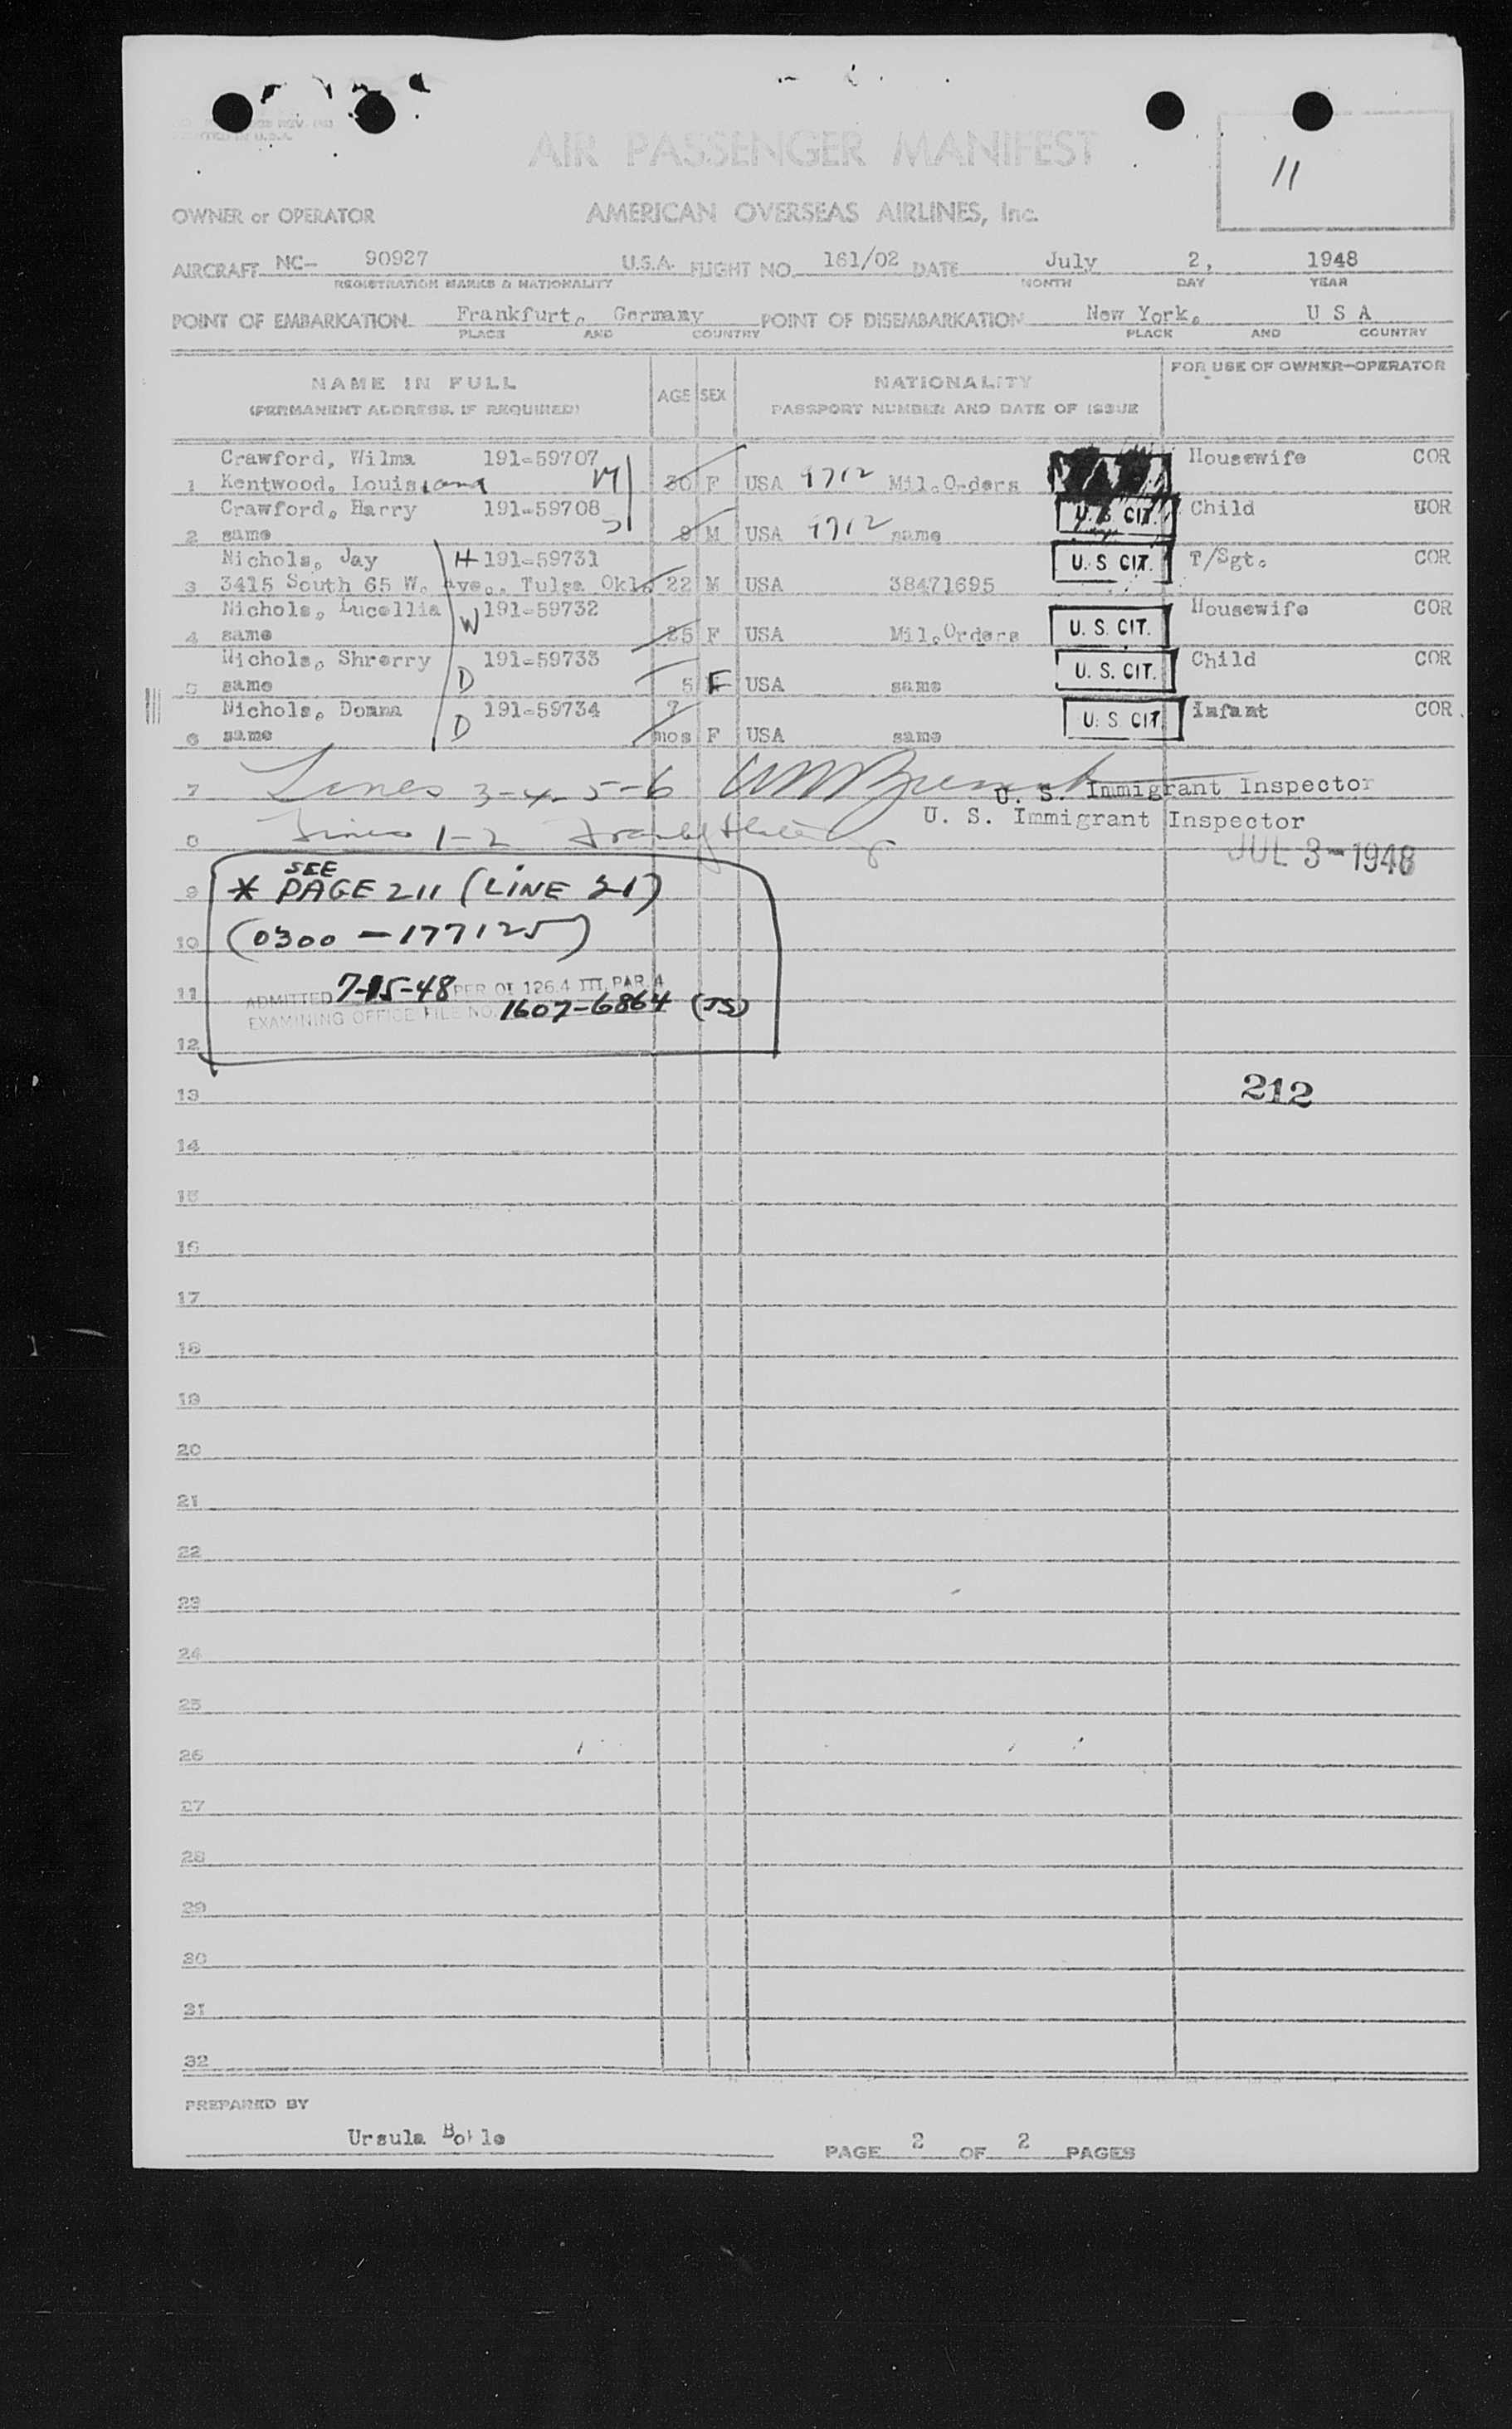 REV.
PRINTED IN U.S.A.
AIR PASSENGER MANIFEST
11
OWNER or OPERATOR AMERICAN OVERSEAS AIRLINES, Inc.
AIRCRAFT NC- 90927 U.S.A. FLIGHT NO. 161/02 DATE July 2, 1948
REGISTRATION MARKS & NATIONALITY MONTH DAY YEAR
POINT OF EMBARKATION Frankfurt, Germany POINT OF DISEMBARKATION New York, U S A
PLACE AND COUNTRY PLACE AND COUNTRY
NAME IN FULL AGE SEX NATIONALITY FOR USE OF OWNER-OPERATOR
(PERMANENT ADDRESS, IF REQUIRED) PASSPORT NUMBER AND DATE OF ISSUE
Crawford, Wilma 191-59707 Housewife COR
1 Kentwood, Louisiana M 30 F USA 9712 Mil.Orders
Crawford, Harry 191-59708 U.S. CIT. Child COR
2 same S 9 M USA 9712 same
Nichols, Jay H 191-59731 U.S. CIT. T/Sgt. COR
3 3415 South 65 W. Ave., Tulsa Okl. 22 M USA 38471695
Nichols, Lucellia W 191-59732 U. S. CIT. Housewife COR
4 same 25 F USA Mil.Orders
Nichols, Shrerry D 191-59733 U. S. CIT. Child COR
5 same 5 F USA same
Nichols, Donna D 191-59734 7 U. S. CIT. Infant COR
6 same mos F USA same
7 Lines 3-4-5-6 U. S. Immigrant Inspector
U. S. Immigrant Inspector
8 Lines 1-2
JUL 3-1948
SEE
9 * PAGE 211 (LINE 21)
10 (0300-177125)
11 ADMITTED 7-15-48 PER OI 126.4 III, PAR. 4
EXAMINING OFFICE FILE NO. 1607-6864 (JS)
12
13 212
14
15
16
17
18
19
20
21
22
23
24
25
26
27
28
29
30
31
32
PREPARED BY
Ursula
PAGE 2 OF 2 PAGES